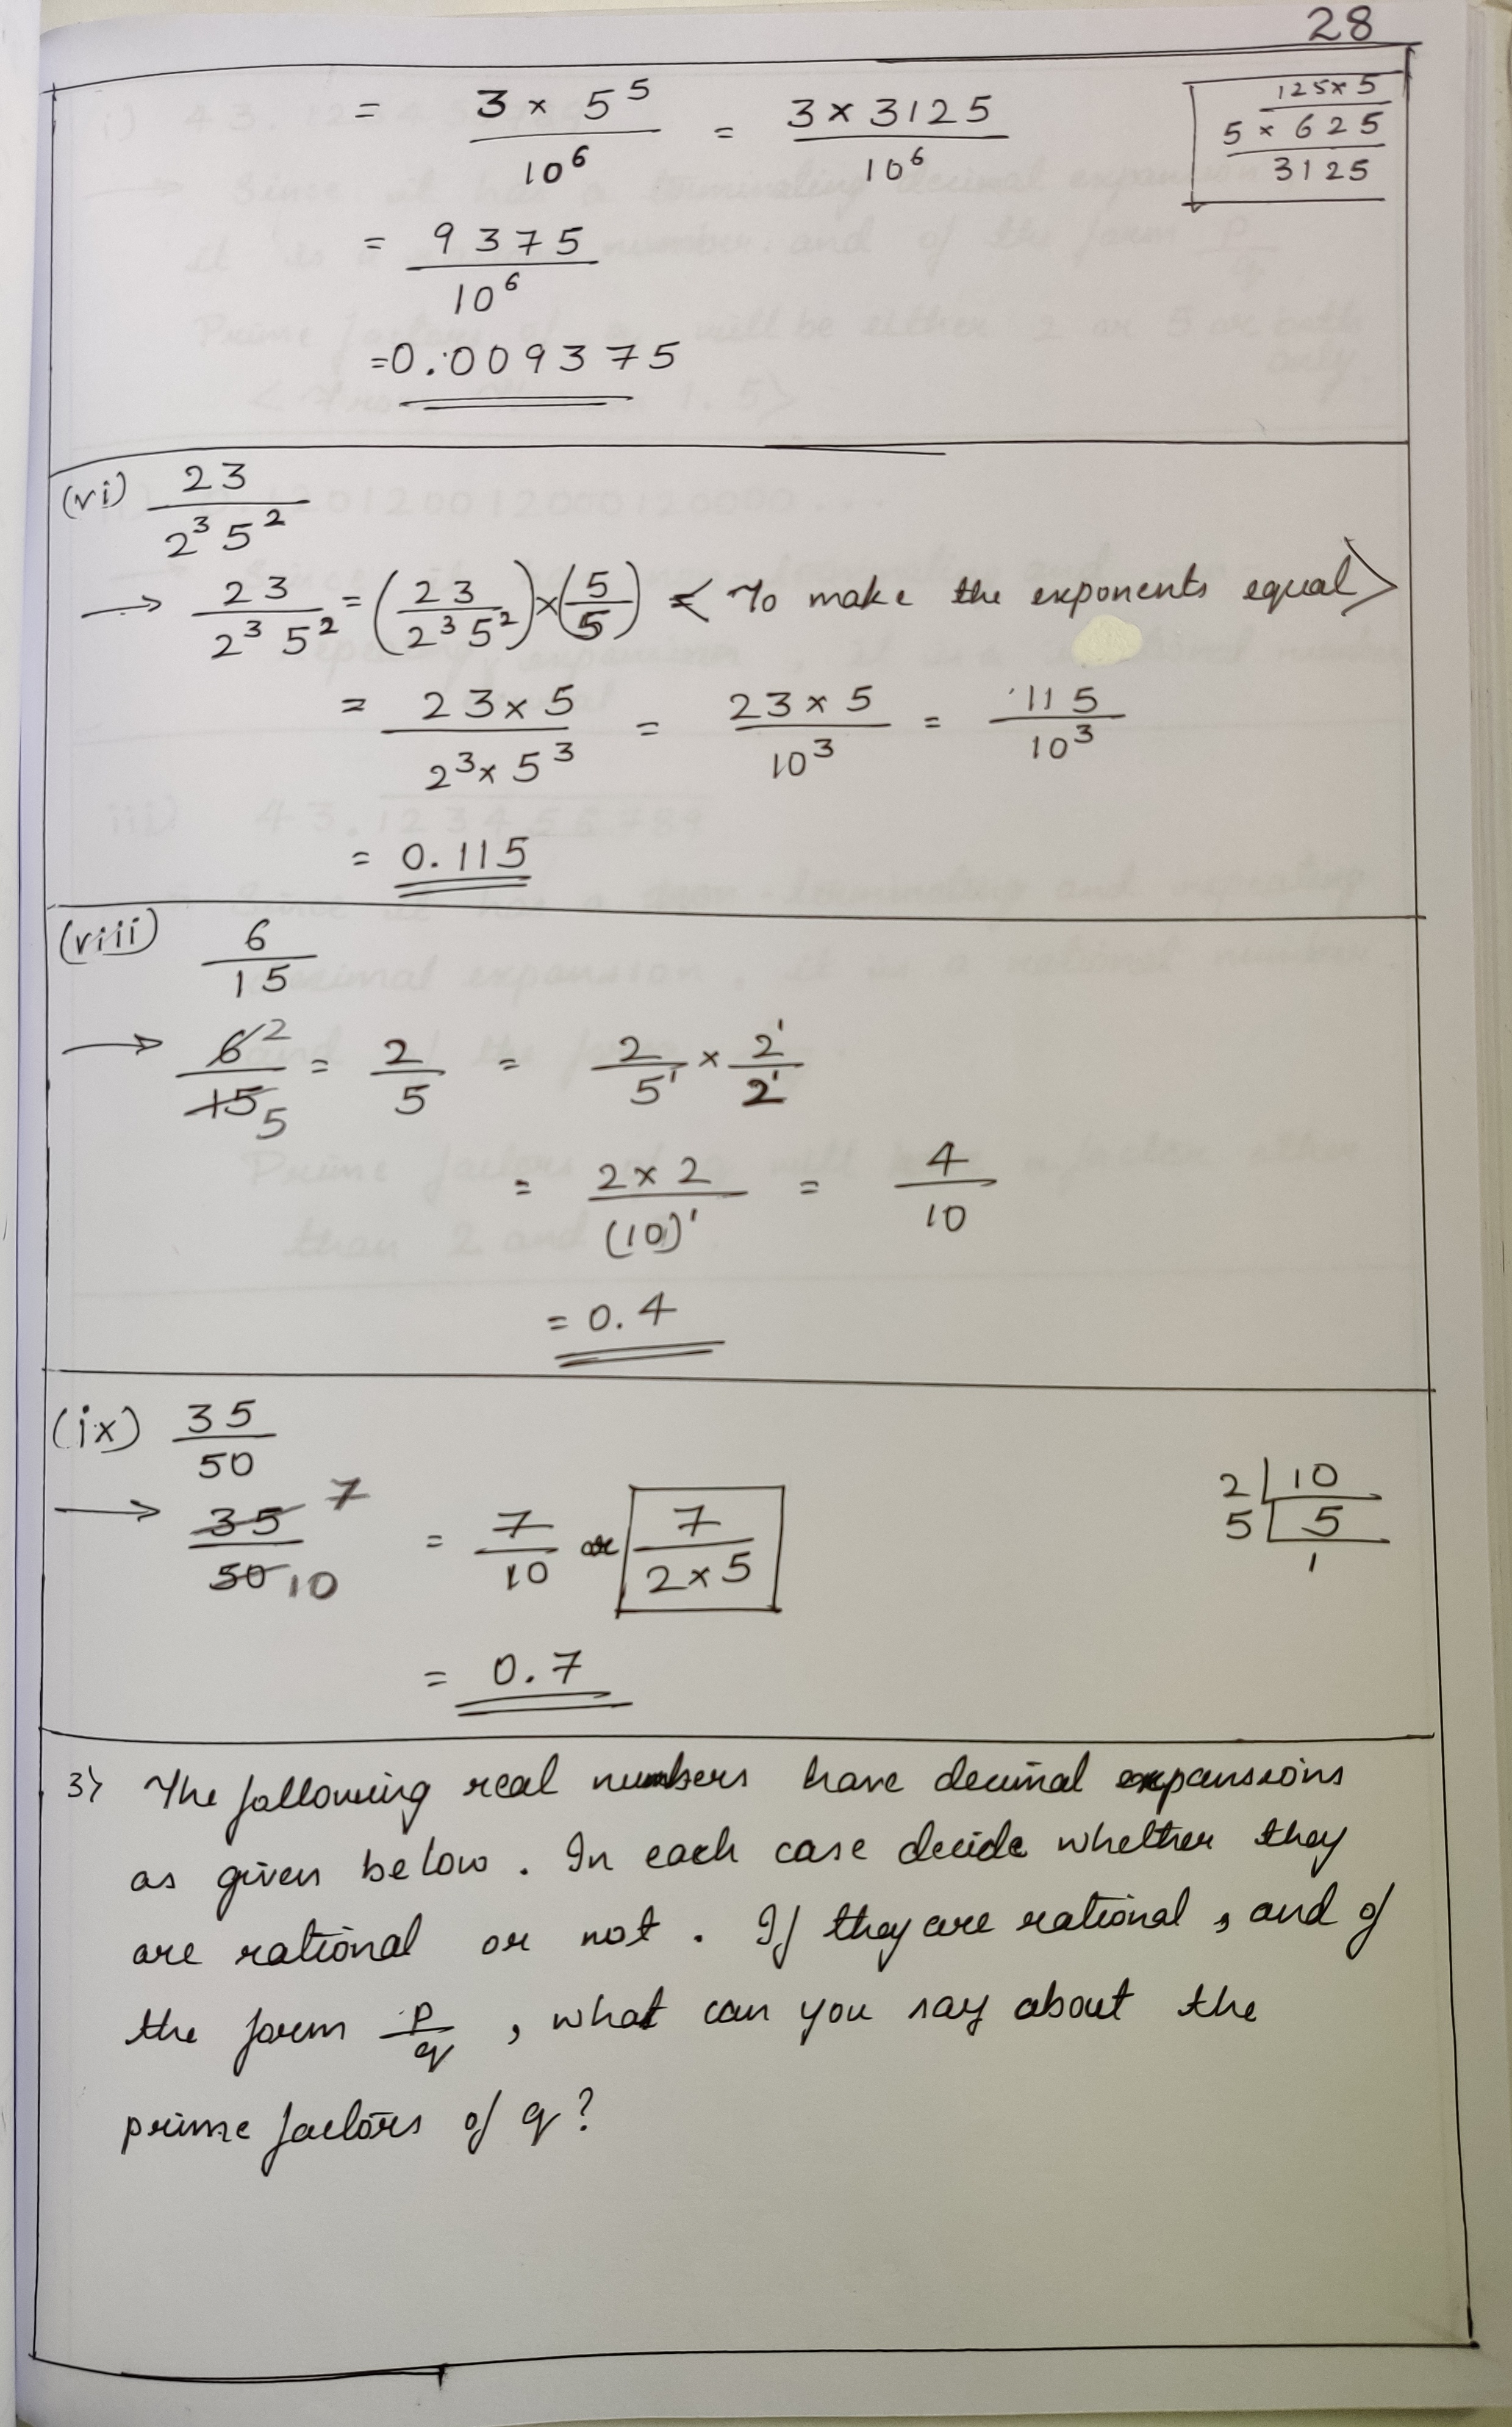 28
= 3 × 5⁵ / 10⁶ = 3 × 3125 / 10⁶
125 × 5
5 × 625
3125
= 9375 / 10⁶
= 0.009375
(vi) 23 / 2³ 5²
→ 23 / 2³ 5² = (23 / 2³ 5²) × (5 / 5) < To make the exponents equal >
= 23 × 5 / 2³ × 5³ = 23 × 5 / 10³ = 115 / 10³
= 0.115
(viii) 6 / 15
→ 6 2 / 15 5 = 2 / 5 = 2 / 5¹ × 2¹ / 2¹
= 2 × 2 / (10)¹ = 4 / 10
= 0.4
(ix) 35 / 50
→ 35 7 / 50 10 = 7 / 10 or 7 / 2 × 5
2 | 10
5 | 5
1
= 0.7
3) The following real numbers have decimal expansions
as given below. In each case decide whether they
are rational or not. If they are rational, and of
the form p / q, what can you say about the
prime factors of q?